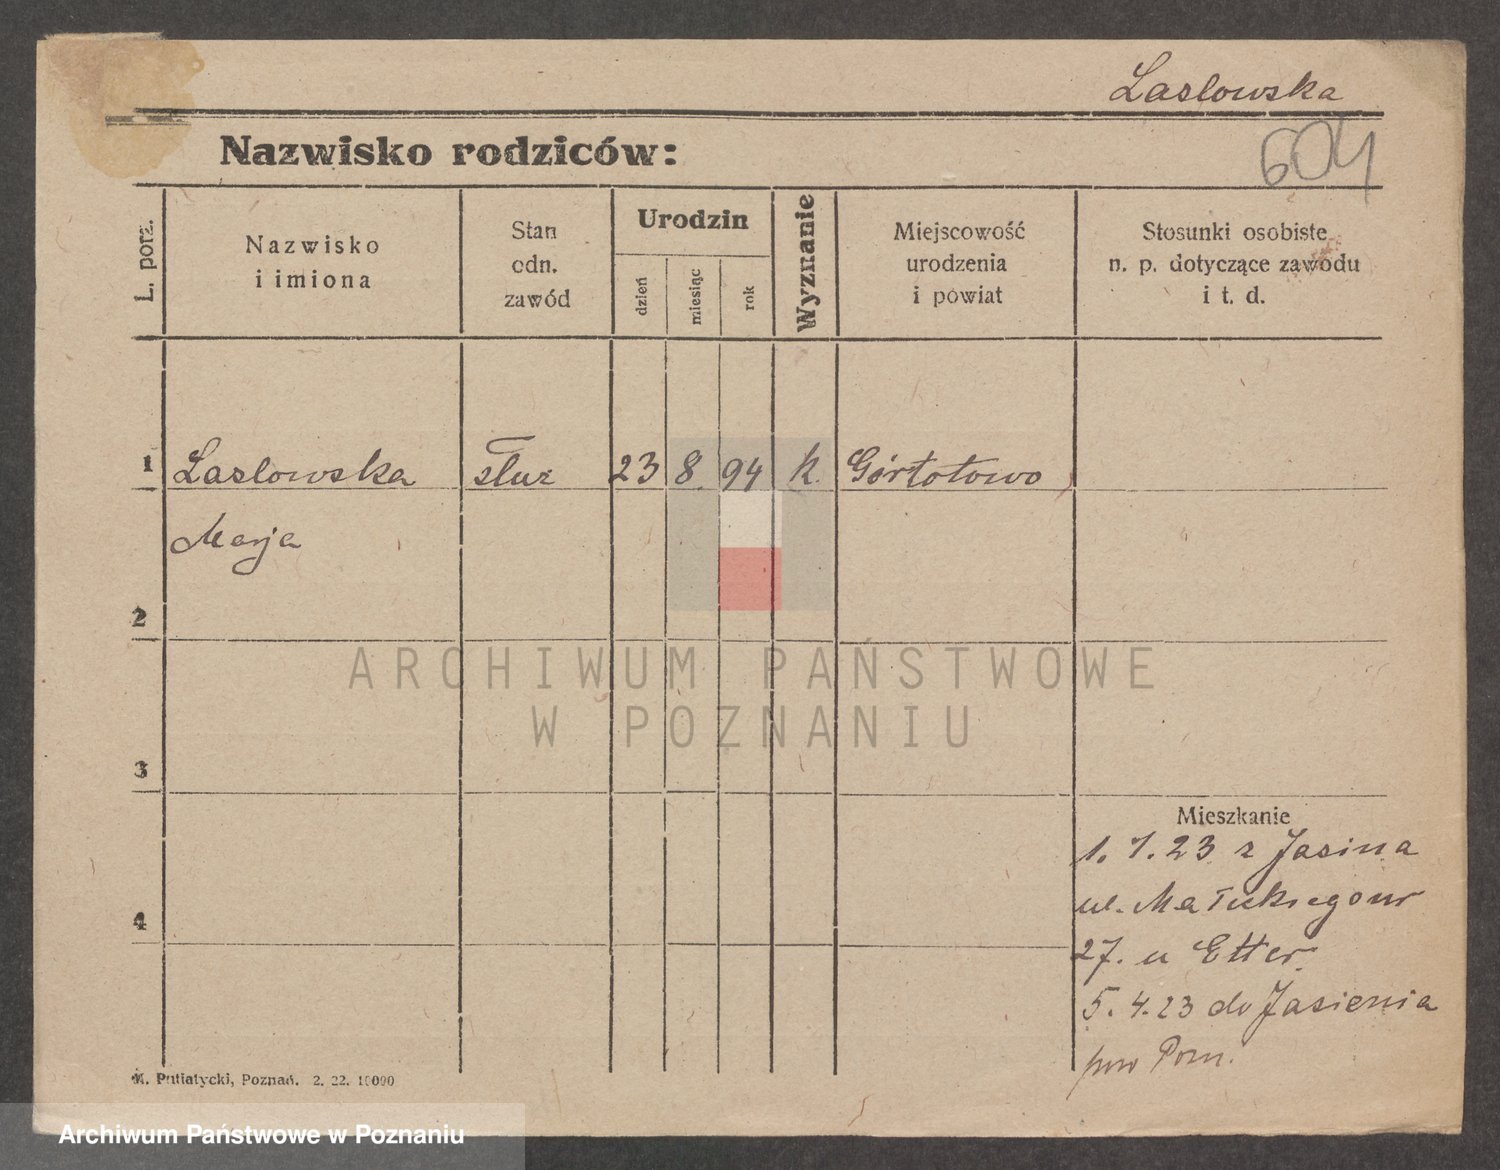 Laslowska
Nazwisko rodziców:
604
L. porz.
Nazwisko
i imiona
Stan
odn.
zawód
Urodzin
dzień
miesiąc
rok
Wyznanie
Miejscowość
urodzenia
i powiat
Stosunki osobiste
n. p. dotyczące zawodu
i t. d.
1 Laslowska służ 23 8. 94 k.
Marja
2
ARCHIWUM PAŃSTWOWE
W POZNANIU
3
Mieszkanie
1. 1. 23 z Jasina
ul.
4
27. u Etter.
5. 4. 23 do Jasienia
pow Pozn.
M. Putiatycki, Poznań. 2. 22. 10000
Archiwum Państwowe w Poznaniu